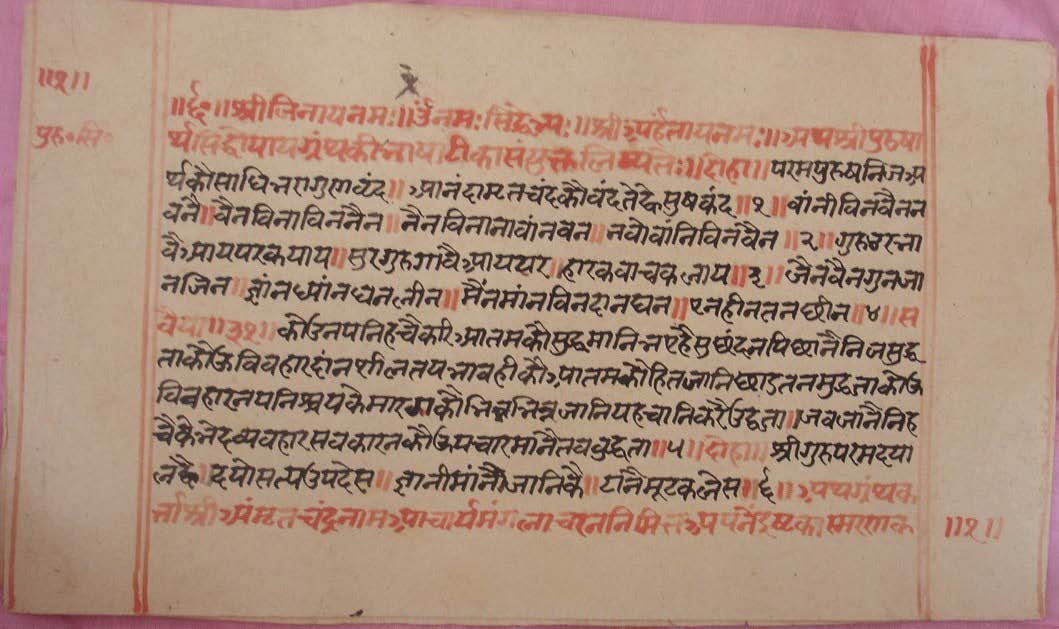 ॥१॥
पुरु॰सि॰
॥र्द॰॥श्रीजिनायनमः॥उंनमःसिद्धेभ्यः॥श्रीअर्हंतायनमः॥अथश्रीपुरुषा
र्थसिद्धोपायग्रंथकीभाषाटीकासंयुक्तलिष्यतेः॥दोहा॥परमपुरुषनिजअ
र्थकौसाधिभएगुणवृंद॥आनंदामृतचंदकौवंदतहैसुषकंद॥१॥वांनीविनवैनन
वनै॥वैनविनाविननैन॥नैनविनानावांनवन॥नवोवांनिविनवैन॥२॥गुरुउरभा
वैआपपरकयाय॥सुरगुरुगावैआपपर॥हारकवाचकभाय॥३॥जैनवैनगुनजा
नजिन॥ज्ञांनध्यांनधनलीन॥मैंनमांनविनदानघन॥एनहीनतनछीन॥४॥स
वैया॥३१॥कोउनयनिहचैकरिआतमकौसुद्धमानिभएहैसुछंदनपिछानैनिजसुद्ध
ताकोऊविवहारदांनशीलतपभावहीकौआतमकोहितजानिछाडतनमुद्धताकोऊ
विवहारनयनिश्चयकेमारगकौभिन्नभिन्नजानिपहचानिकरैउद्धता॥जवजानैनिह
चैकेभेदव्यवहारसवकारनकौऊपचारमांनैतववुद्धता॥५॥दोहा॥श्रीगुरुपरमदया
लह्वै॥दयोसत्यउपदेस॥ज्ञानीमांनैंजानिकै॥ठांनैमूढकलेस॥६॥अथग्रंथक
र्त्ताश्रीअंमृतचंद्रनामआचार्यमंगलाचरननिमित्तअपनेंइष्टकास्मरणक
॥१॥